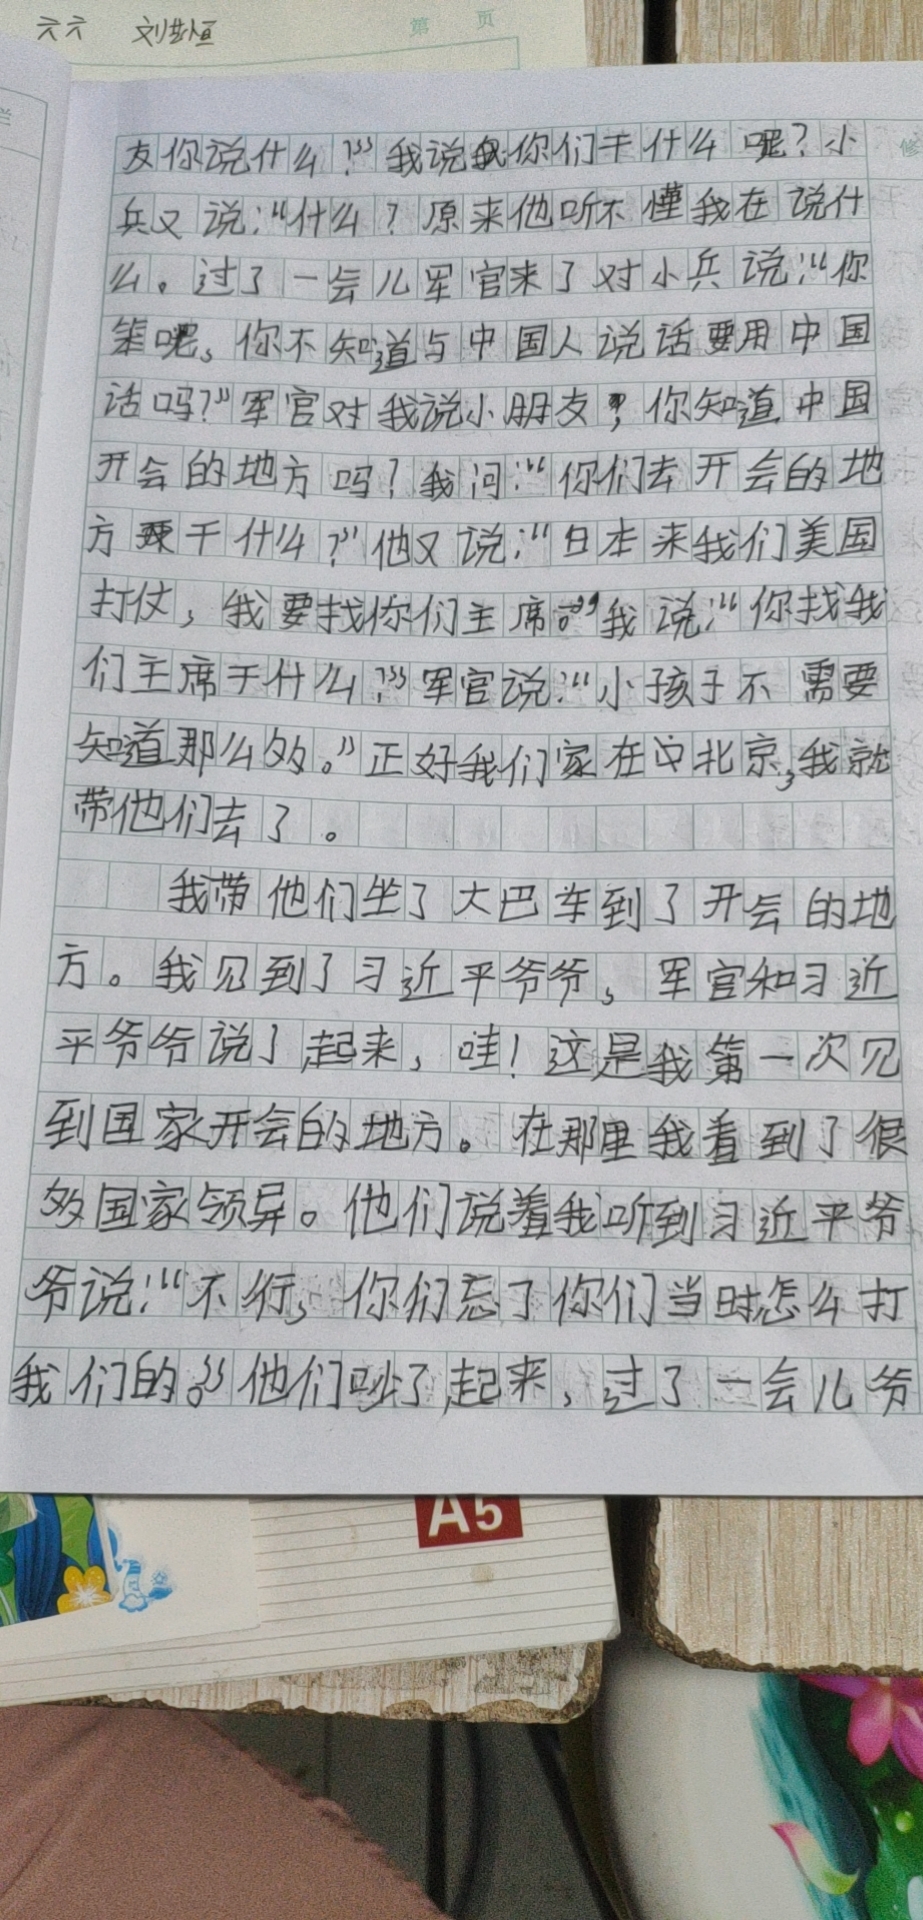 六六 刘
第 页
修
友你说什么？”我说你们干什么呢？小
兵又说：“什么？原来他听不懂我在说什
么。过了一会儿军官来了对小兵说：“你
笨呢，你不知道与中国人说话要用中国
话吗？”军官对我说小朋友，你知道中国
开会的地方吗？我问：“你们去开会的地
方要干什么？”他又说：“日本来我们美国
打仗，我要找你们主席。”我说：“你找我
们主席干什么？”军官说：“小孩子不需要
知道那么多。”正好我们家在中北京，我就
带他们去了。
我带他们坐了大巴车到了开会的地
方。我见到了习近平爷爷，军官和习近
平爷爷说了起来，哇！这是我第一次见
到国家开会的地方。在那里我看到了很
多国家领导。他们说着我听到习近平爷
爷说：“不行，你们忘了你们当时怎么打
我们的。”他们吵了起来，过了一会儿爷
A5